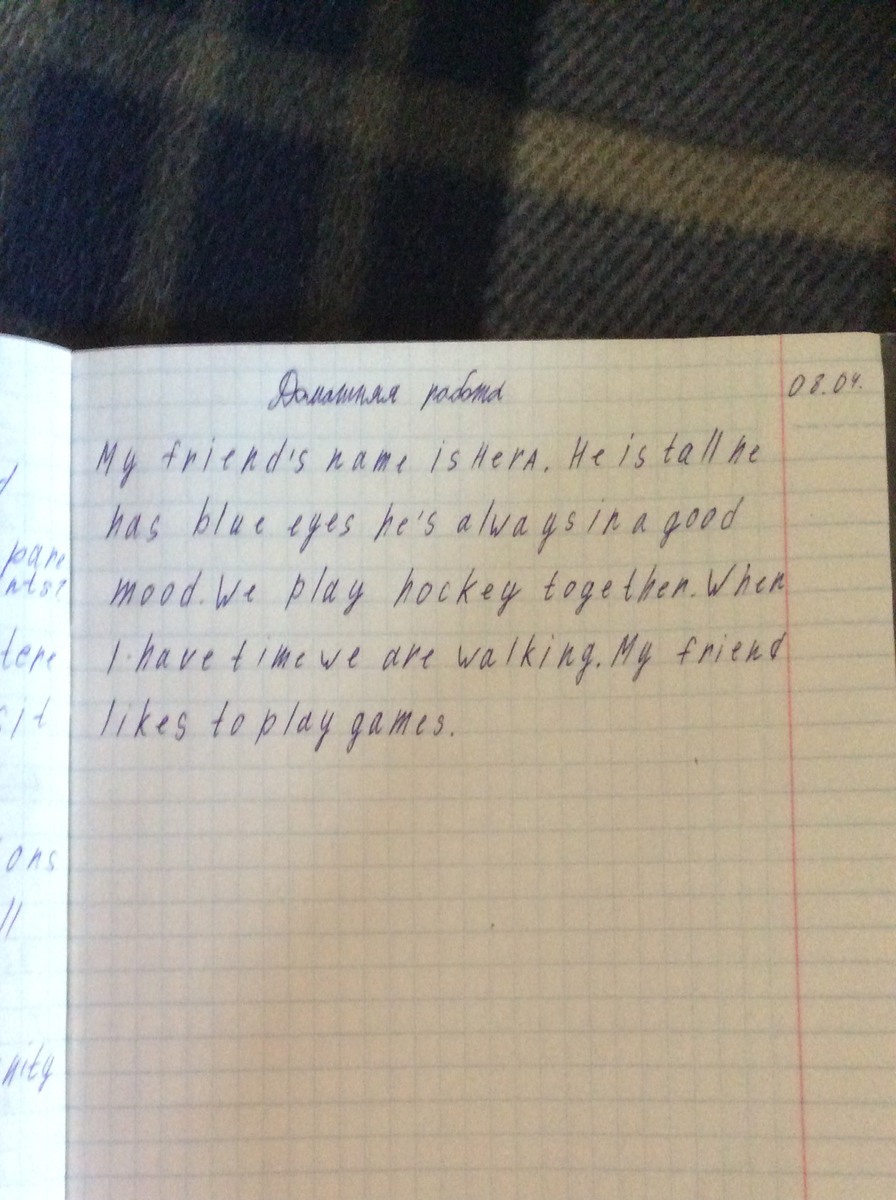 Домашняя работа
08.04.
My friend's name is Hera. He is tall he
has blue eyes he's always in a good
mood. We play hockey together. When
I have time we are walking. My friend
likes to play games.
pare
nts?
tere
sit
ons
ll
nity